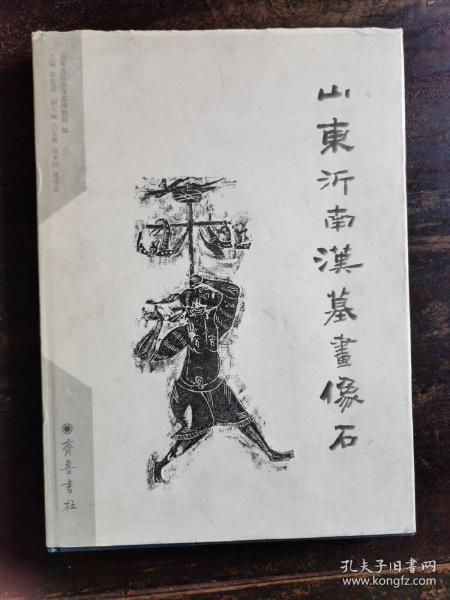 山東沂南漢墓畫像石
齊魯書社
孔夫子旧书网
www.kongfz.com